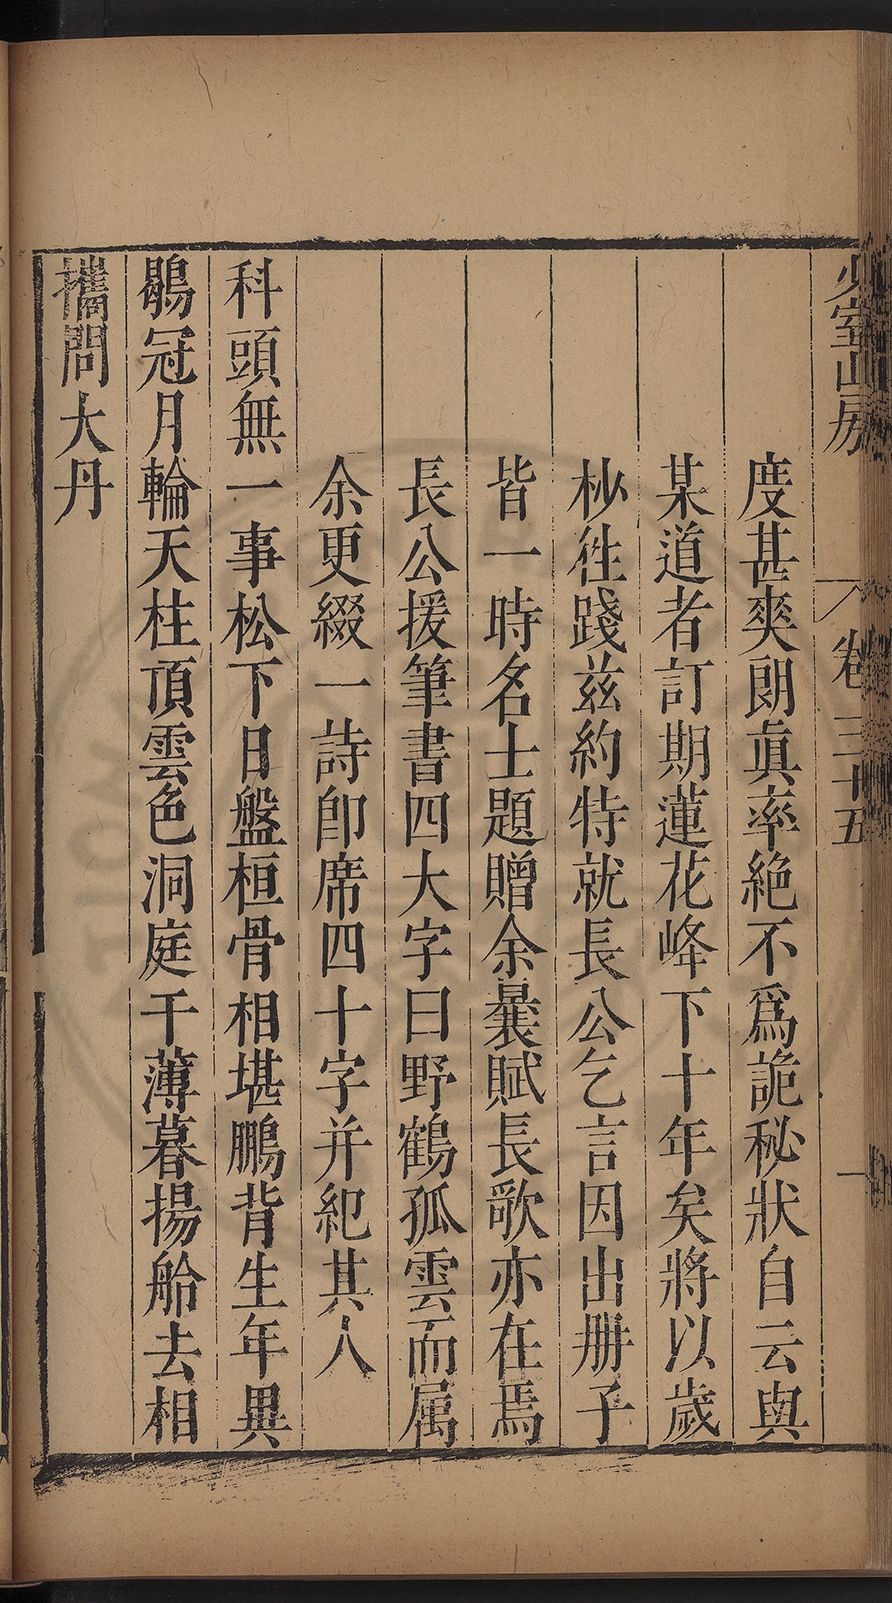 少室山房 卷三十五 一
度甚爽朗眞率絶不爲詭秘狀自云與
某道者訂期蓮花峰下十年矣將以歲
杪徃踐兹約特就長公乞言因出册子
皆一時名士題贈余曩賦長歌亦在焉
長公援筆書四大字曰野鶴孤雲而属
余更綴一詩卽席四十字并紀其人
科頭無一事松下日盤桓骨相堪鵬背生年異
鶡冠月輪天柱頂雲色洞庭干薄暮揚舲去相
攜問大丹